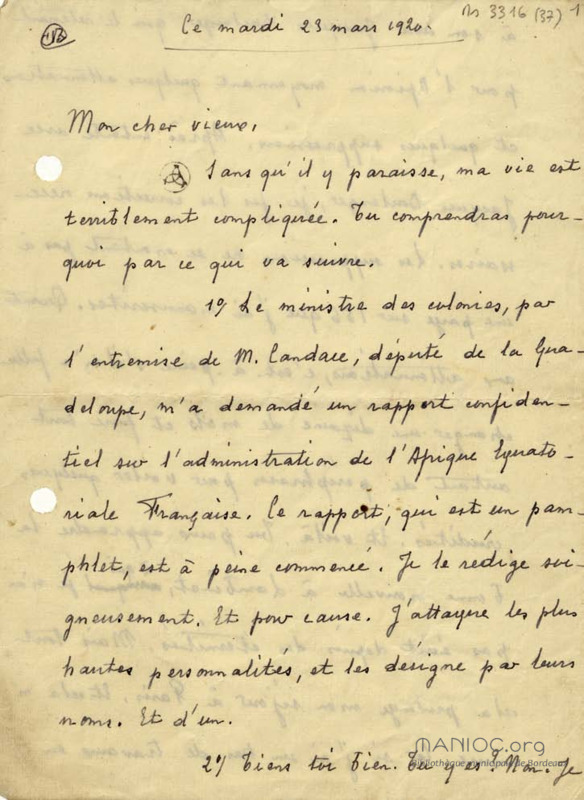 Ms 3316 (37) 1
Ce mardi 23 mars 1920.
Mon cher vieux,
Sans qu'il y paraisse, ma vie est
terriblement compliquée. Tu comprendras pour-
quoi par ce qui va suivre.
1°/ Le ministre des colonies, par
l'entremise de M. Candace, député de la Gua-
deloupe, m'a demandé un rapport confiden-
tiel sur l'administration de l'Afrique Equato-
riale Française. Ce rapport, qui est un pam-
phlet, est à peine commencé. Je le rédige soi-
gneusement. Et pour cause. J'attaque les plus
hautes personnalités, et les désigne par leurs
noms. Et d'un.
2°/ Tiens toi bien. Tu y es? Non. Je
MANIOC.org
Bibliothèque municipale de Bordeaux